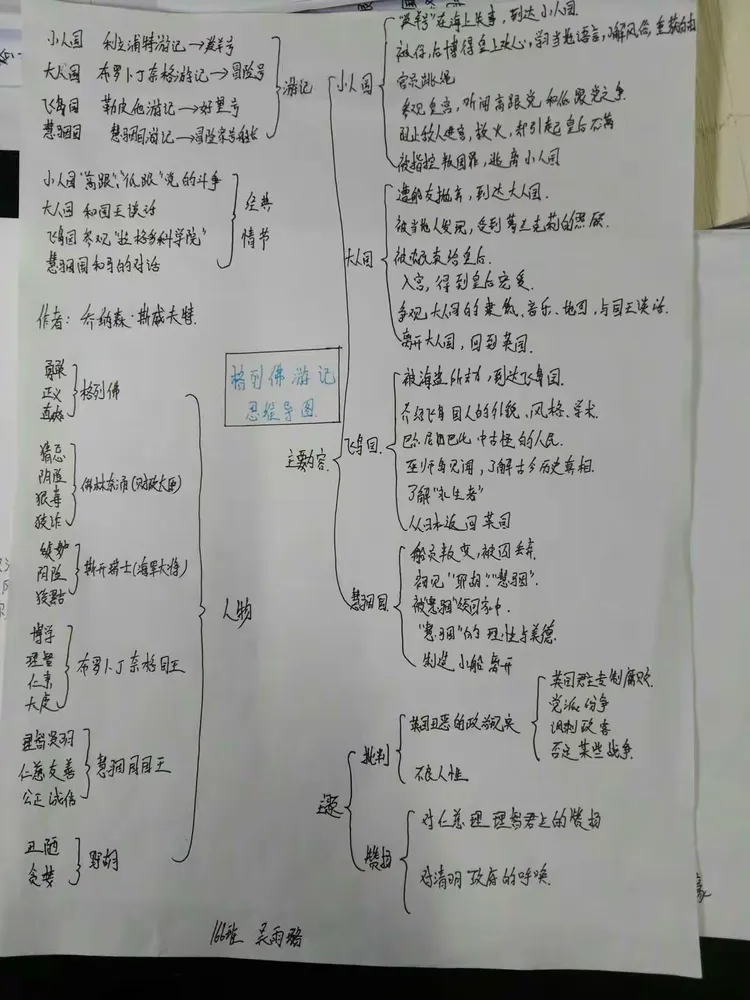 小人国 利立浦特游记→羚羊号
大人国 布罗卜丁奈格游记→冒险号
飞岛国 勒皮他游记→好望号
慧骃国 慧骃国游记→冒险家号船长
游记
小人国"高跟""低跟"党的斗争
大人国 和国王谈话
飞岛国 参观"拉格多科学院"
慧骃国和马的对话
经典
情节
作者：乔纳森·斯威夫特.
格列佛游记
思维导图
勇敢
正义
格列佛
猜忌
阴险
狠毒
狡诈
佛林奈浦(财政大臣)
嫉妒
阴险
狡黠
斯开瑞士(海军大将)
博学
理智
仁慈
大度
布罗卜丁奈格国王
理智贤明
仁慈友善
公正诚信
慧骃国国王
丑陋
贪婪
野胡
人物
主要内容
小人国
"羚羊号"在海上失事，到达小人国.
被俘，后博得皇上欢心，学习当地语言，了解风俗，
官员跳绳
参观皇宫，听闻高跟党和低跟党之争.
阻止敌人进宫，救火，却引起皇后不满
被指控叛国罪，逃离小人国
大人国
遭船友抛弃，到达大人国.
被当地人发现，受到葛兰克莉的照顾.
被农民卖给皇后.
入宫，得到皇后宠爱.
参观大人国的建筑、音乐、地图，与国王谈话.
离开大人国，回到英国.
飞岛国
被海盗所劫，到达飞岛国.
介绍飞岛国人的外貌、风格、学术
巴尔尼巴比中古怪的人民.
巫师岛见闻，了解古今历史真相.
了解"永生者"
从日本返回英国
慧骃国
船员叛变，被囚丢弃.
初见"耶胡""慧骃".
被"慧骃"领回家中.
"慧骃"的理性与美德.
制造小船离开
主题
批判
英国丑恶的政治现实
英国君主专制腐败.
党派纷争
讽刺政客
否定某些战争.
不良人性
赞扬
对仁慈理理智君上的赞扬
对清明政府的呼唤.
166班 吴雨璐